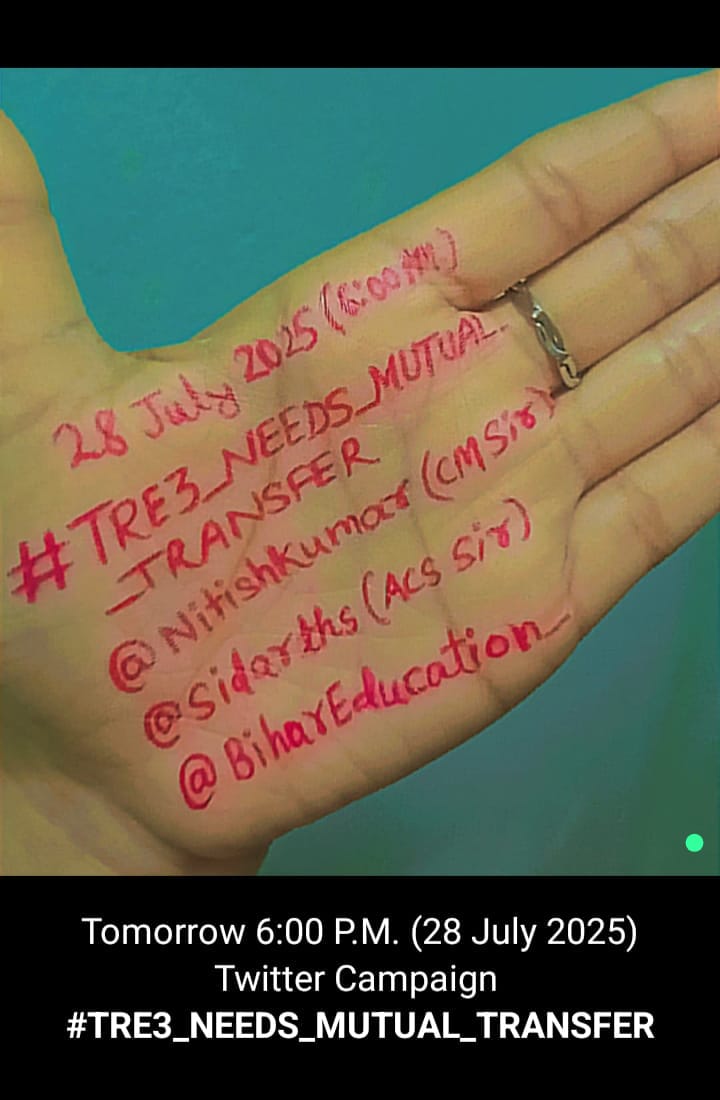 28 July 2025 (6:00 PM)
#TRE3_NEEDS_MUTUAL
_TRANSFER
@Nitishkumar (CM Sir)
@Sidarths (ACS Sir)
@BiharEducation_
Tomorrow 6:00 P.M. (28 July 2025)
Twitter Campaign
#TRE3_NEEDS_MUTUAL_TRANSFER